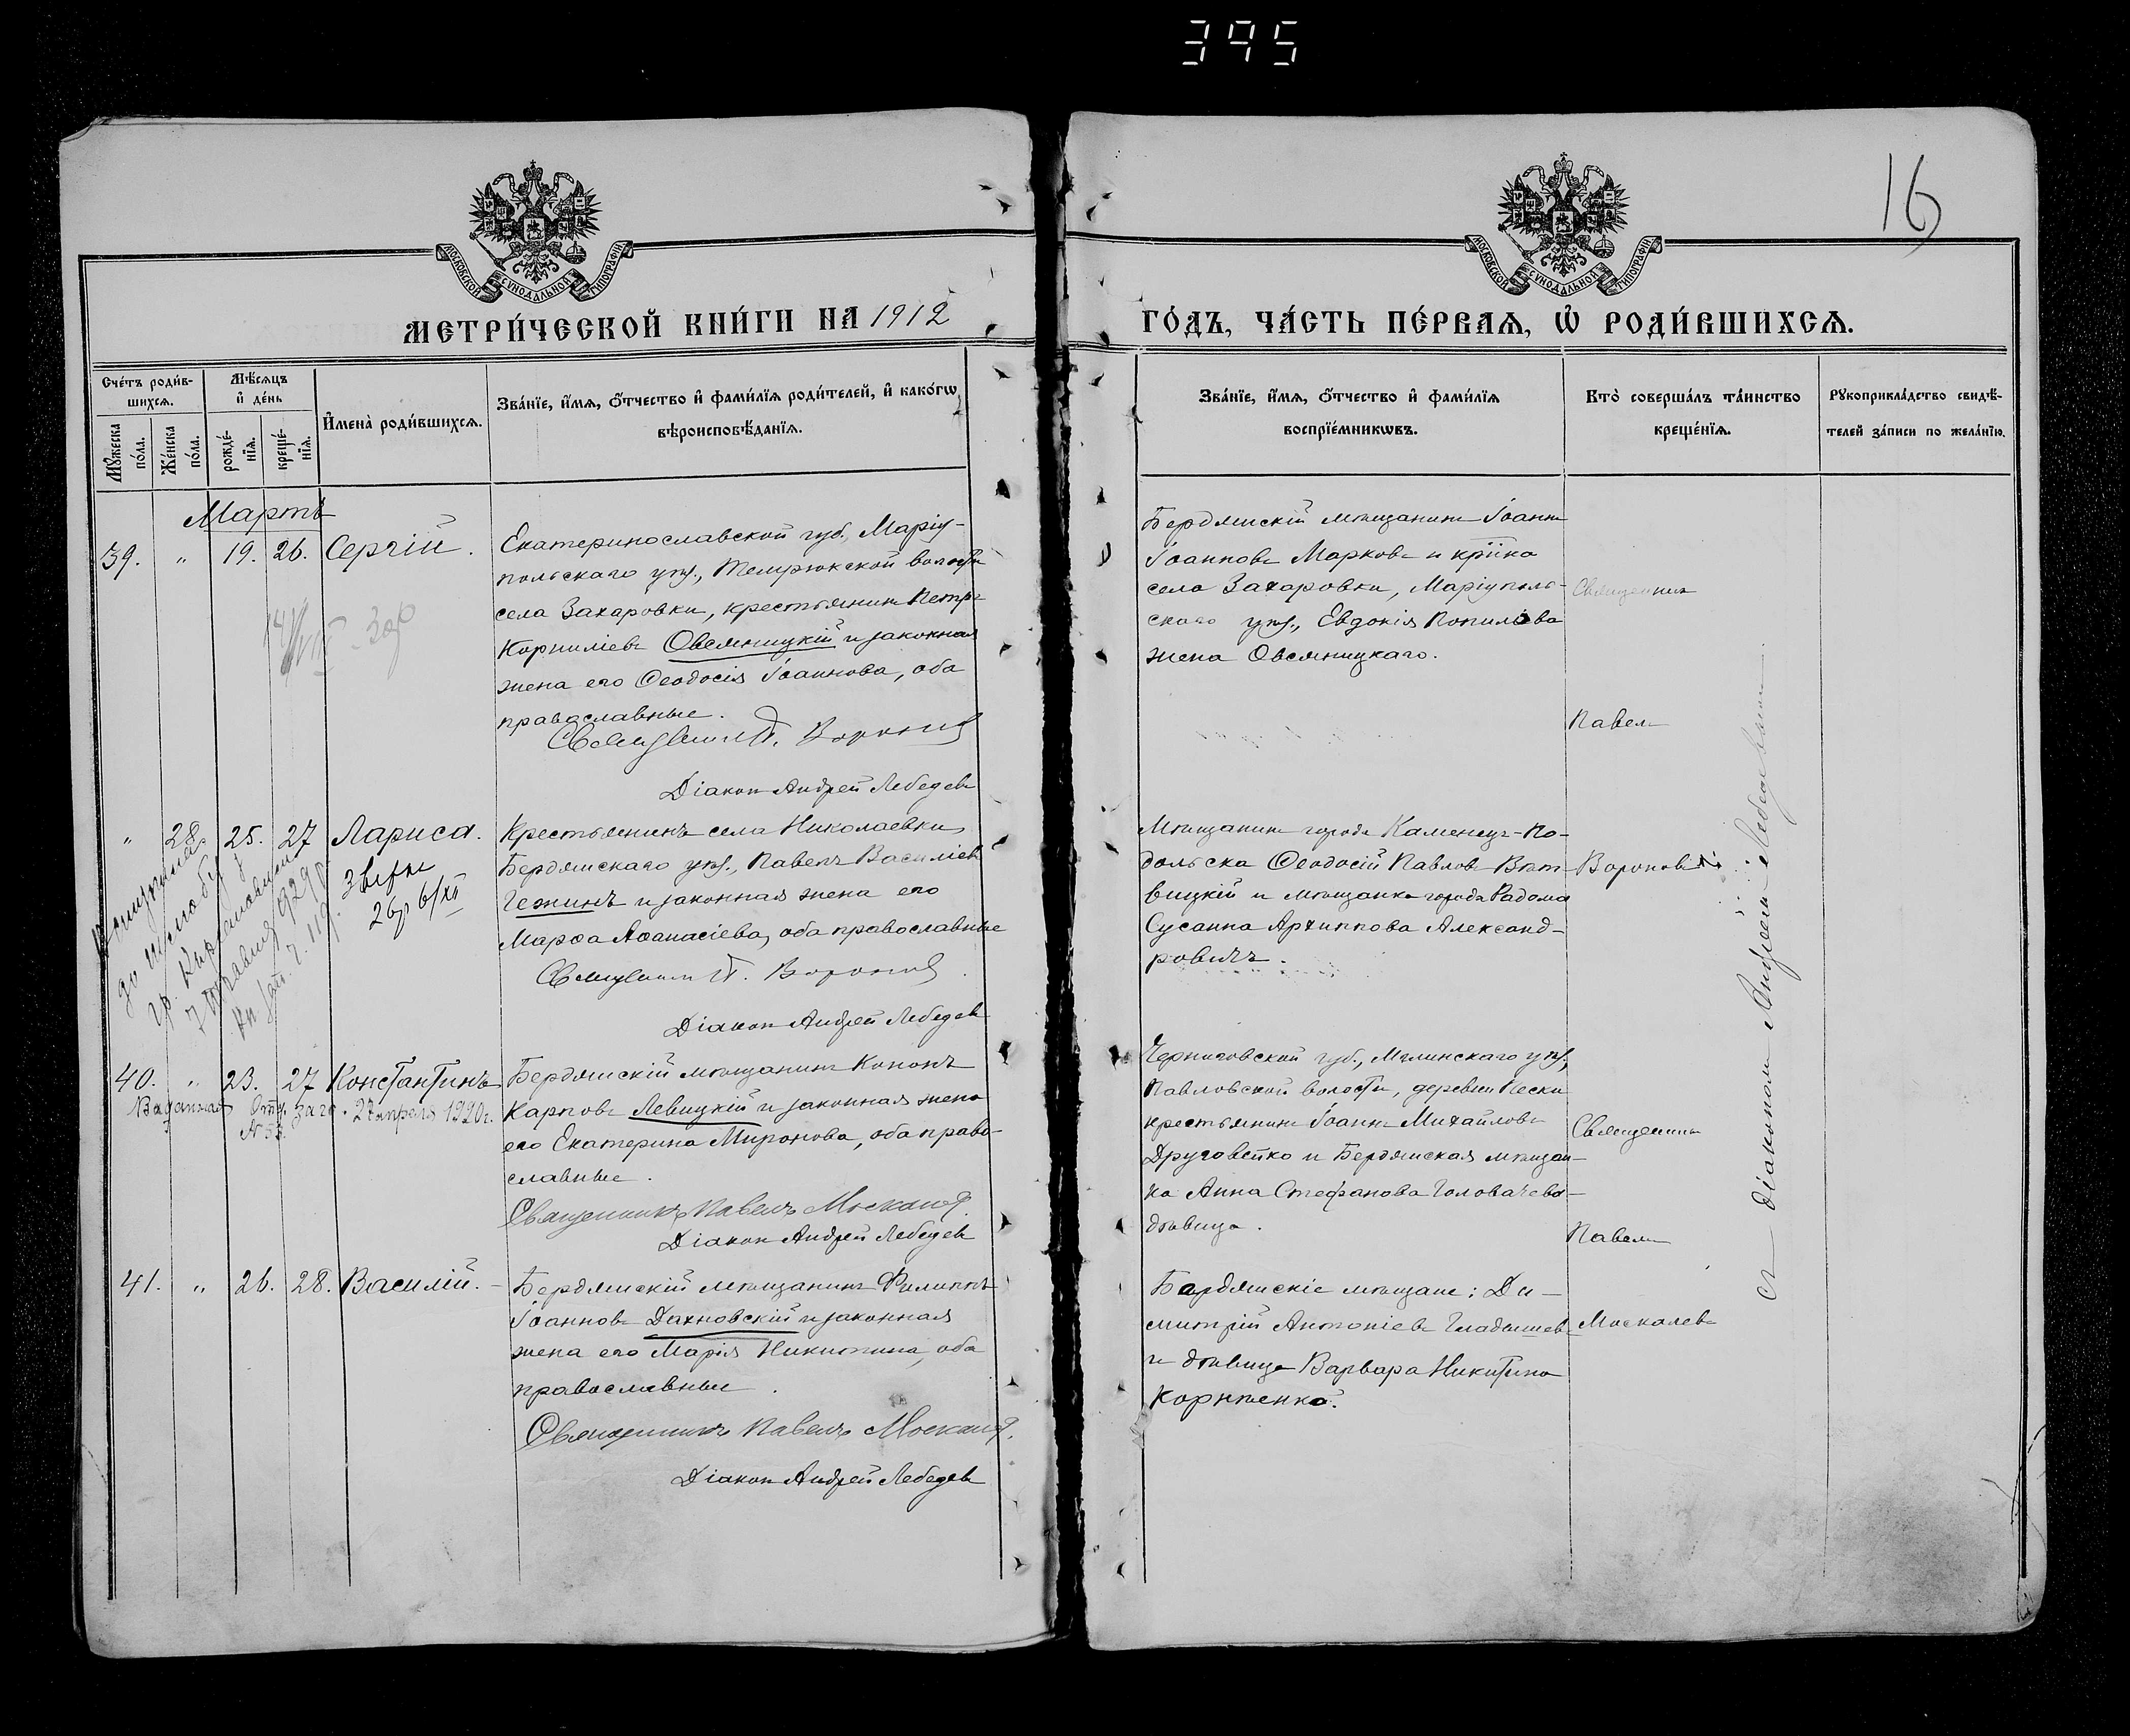 395
16
МОСКОВСКОЙ СѴНОДАЛЬНОЙ ТИПОГРАФІИ
МОСКОВСКОЙ СѴНОДАЛЬНОЙ ТИПОГРАФІИ
МЕТРИ́ЧЕСКОЙ КНИ́ГИ НА 1912
ГО́ДЪ, ЧА́СТЬ ПЕ́РВАѦ, Ѡ҆ РОДИ́ВШИХСѦ.
Сче́тъ роди́в-
шихсѧ.
Мꙋ́жеска по́ла.
Же́нска по́ла.
Мѣ́сѧцъ
и҆ де́нь
рожде́-
нїѧ.
креще́-
нїѧ.
И҆мена̀ роди́вшихсѧ.
Зва́нїе, и҆́мѧ, ѻ҆́тчество и҆ фами́лїѧ роди́телей, и҆ како́гѡ
вѣроисповѣ́данїѧ.
Зва́нїе, и҆́мѧ, ѻ҆́тчество и҆ фами́лїѧ
воспрїе́мникѡвъ.
Кто̀ соверша́лъ та́инство
креще́нїѧ.
Рꙋкоприкла́дство свидѣ́-
телей за́писи по жела́нїю.
Мартъ
39. " 19. 26. Сергій.
Екатеринославской губ., Маріу-
польскаго уѣз., Темрюкской волости
села Захаровки, крестьянинъ Петръ
Корниліевъ Овсяницкій и законная
жена его Ѳеодосія Іоаннова, оба
православные.
Священникъ П. Вороновъ
Діаконъ Андрей Лебедевъ
Бердянскій мѣщанинъ Іоаннъ
Іоанновъ Марковъ и кр҃нка
села Захаровки, Маріуполь-
скаго уѣз., Евдокія
жена Овсяницкаго.
Священникъ
Павелъ
" 28. 25. 27 Лариса.
26р 6/XII
Крестьянинъ села Николаевки,
Бердянскаго уѣз., Павелъ Василіевъ
Гежинъ и законная жена его
Марѳа Аѳанасіева, оба православные
Священникъ П. Вороновъ
Діаконъ Андрей Лебедевъ
Мѣщанинъ города Каменецъ-По-
дольска Ѳеодосій Павловъ Вит-
вицкій и мѣщанка города Радома
Сусанна Архиппова Александ-
ровичъ.
Вороновъ
съ діакономъ Андреемъ Лебедевымъ
40. " 23. 27 Константинъ
27 апреля 1920 г.
Бердянскій мѣщанинъ Кононъ
Карповъ Левицкій и законная жена
его Екатерина Миронова, оба право-
славные.
Священникъ Павелъ Москалевъ.
Діаконъ Андрей Лебедевъ
Черниговской губ., Мглинскаго уѣз.,
Павловской волости, деревни Пески
крестьянинъ Іоаннъ Михайловъ
Друговейко и Бердянская мѣщан-
ка Анна Стефанова Головачева-
дѣвица.
Священникъ
Павелъ
41. " 26. 28. Василій.
Бердянскій мѣщанинъ Филиппъ
Іоанновъ Дахновскій и законная
жена его Марія Никитина, оба
православные.
Священникъ Павелъ Москалевъ.
Діаконъ Андрей Лебедевъ
Бердянскіе мѣщане: Ди-
митрій Антоніевъ Гладышевъ
и дѣвица Варвара Никитина
Корніенко.
Москалевъ